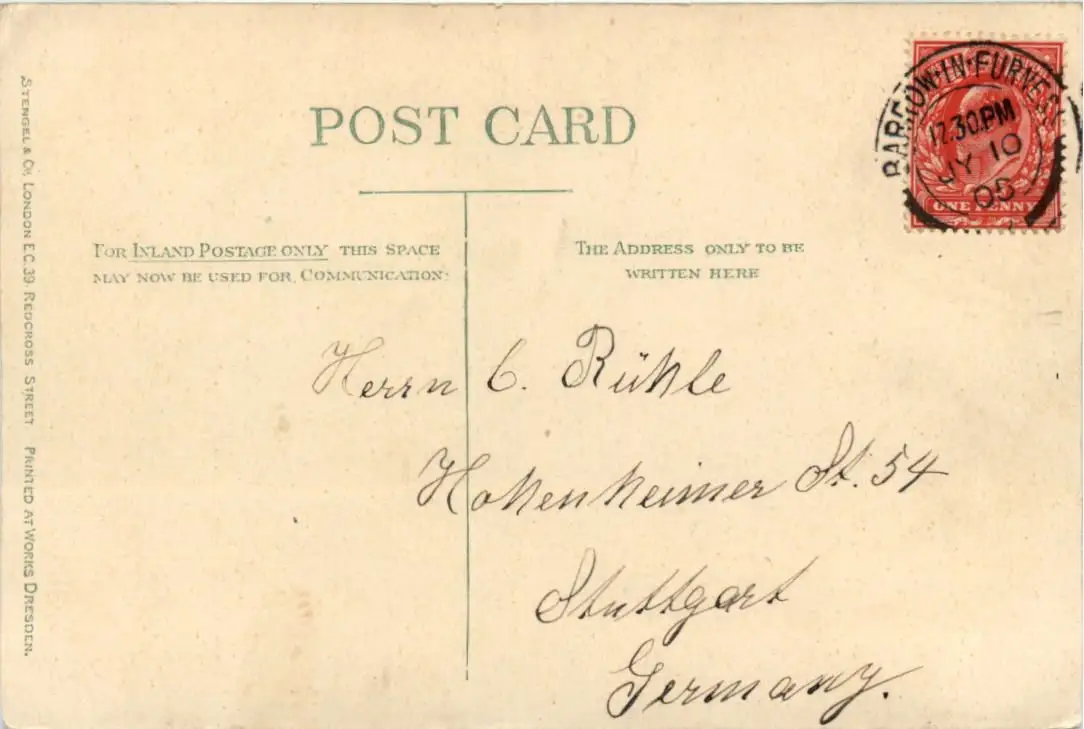 POST CARD
FOR INLAND POSTAGE ONLY THIS SPACE
MAY NOW BE USED FOR COMMUNICATION:
THE ADDRESS ONLY TO BE
WRITTEN HERE
BARROW-IN-FURNESS
12.30PM
JY 10
05
ONE PENNY
Herrn C. Rühle
Hohenheimer St. 54
Stuttgart
Germany.
STENGEL & Co., LONDON E.C. 39 REDCROSS STREET PRINTED AT WORKS DRESDEN.